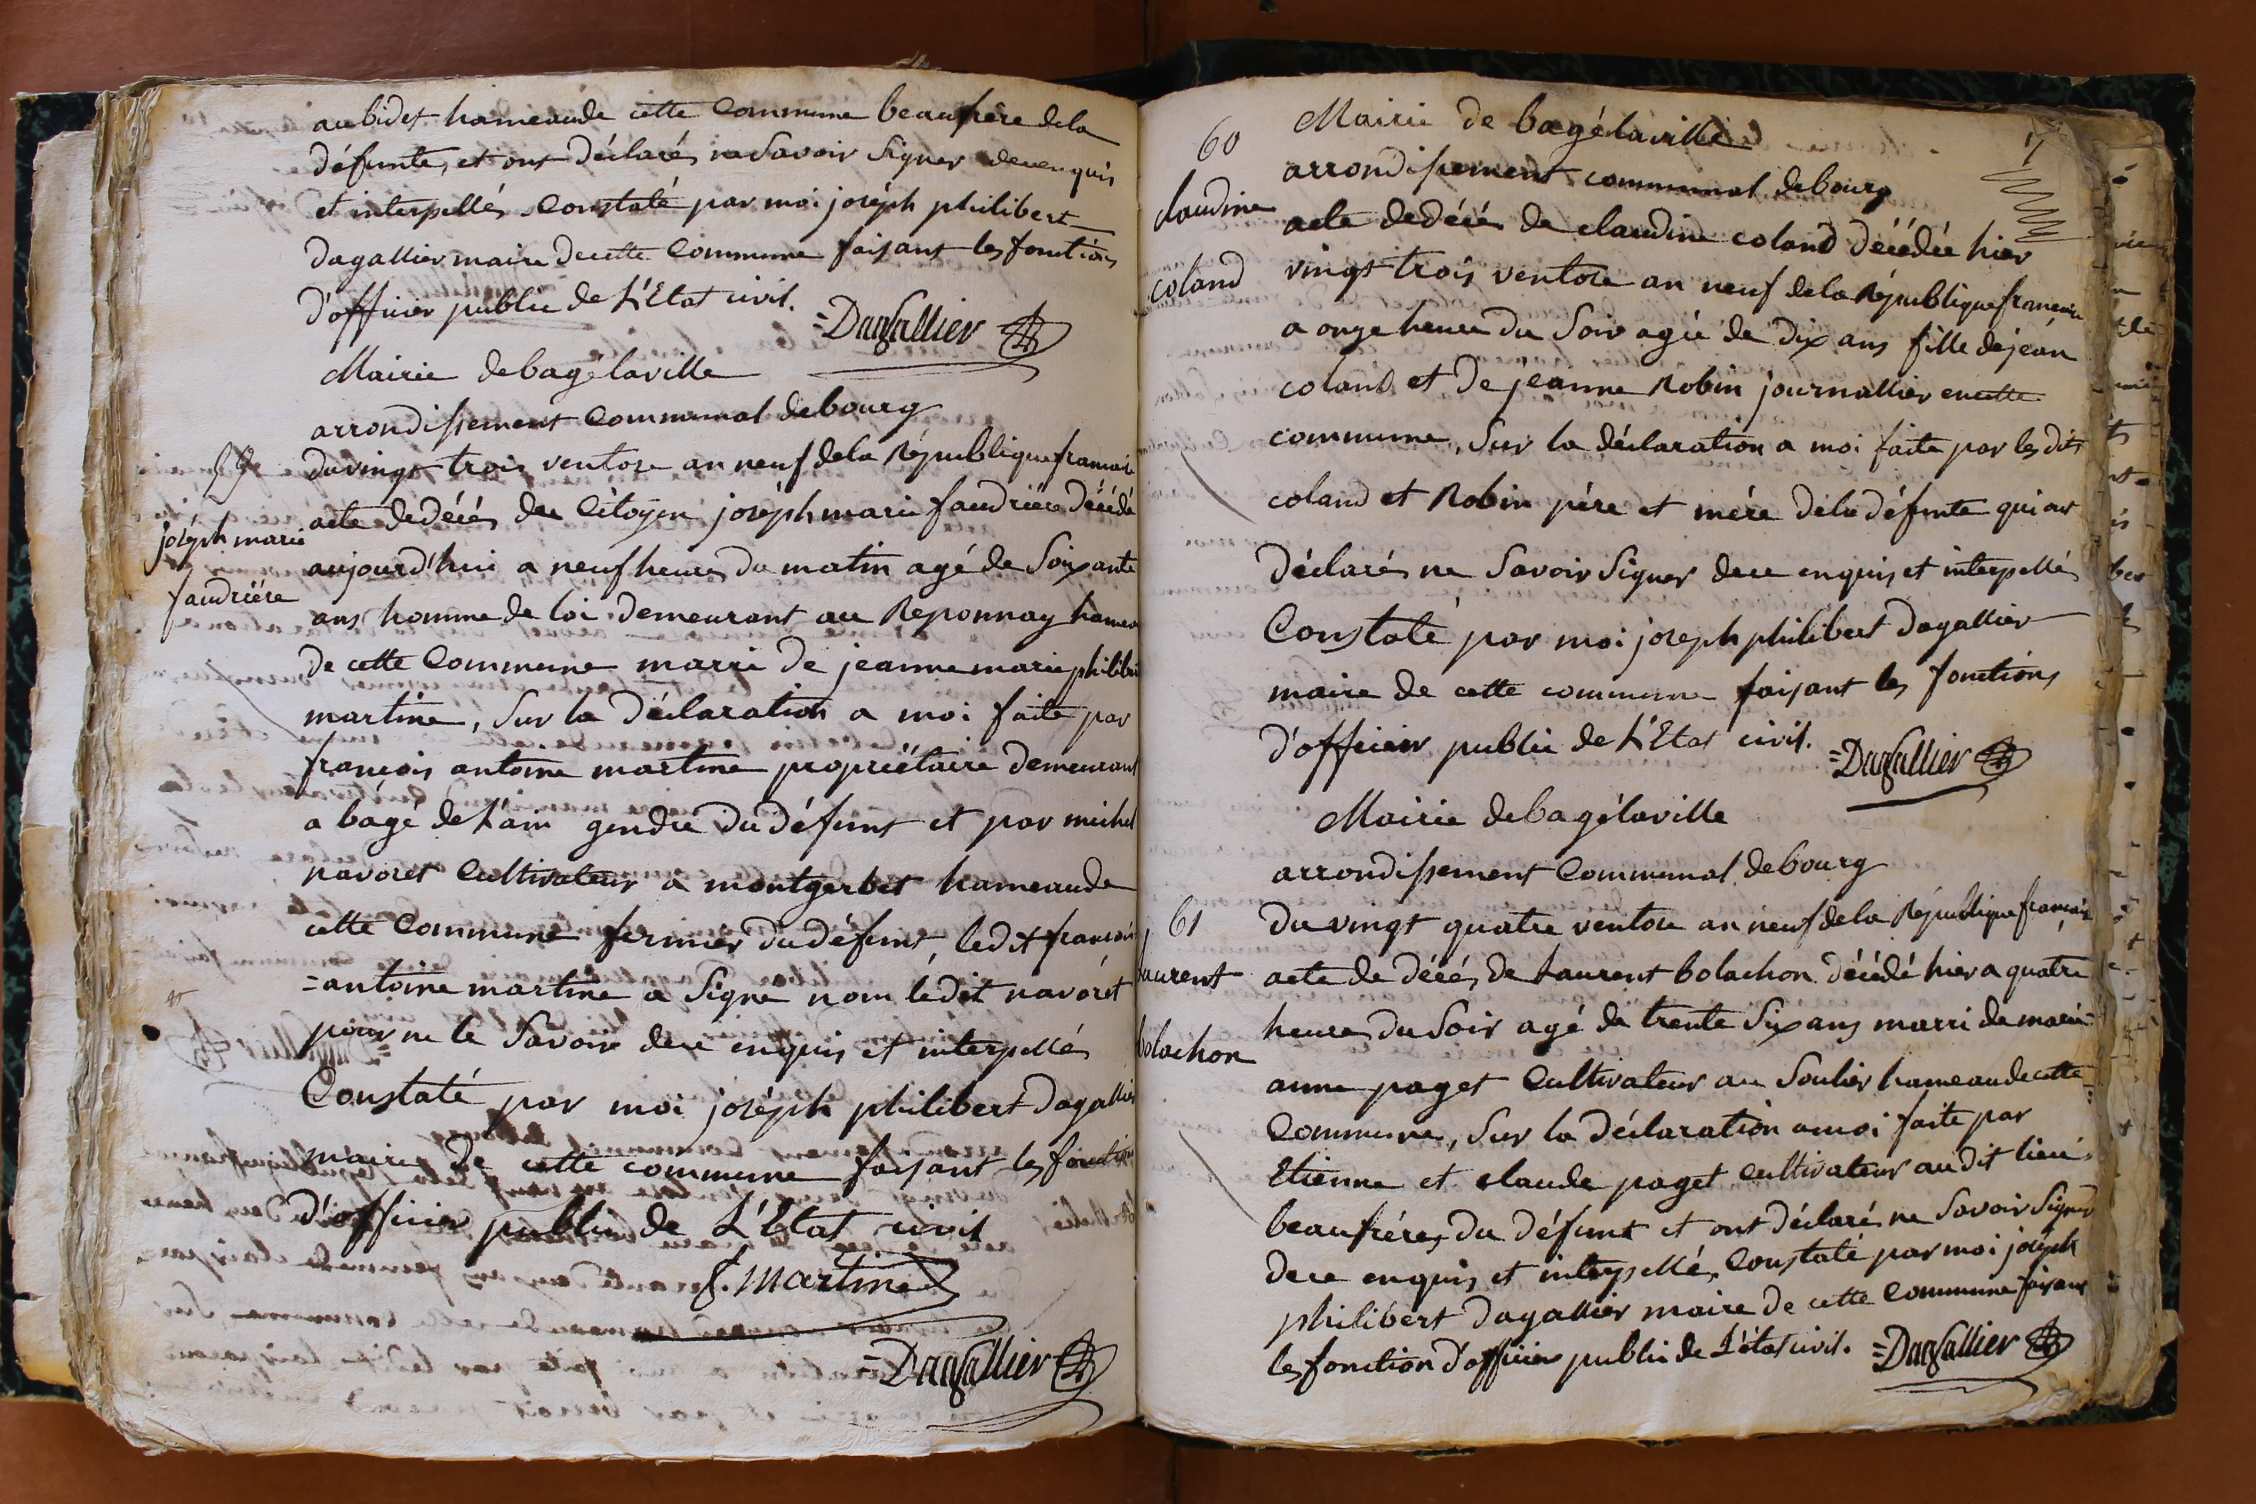 au bidet hameau de cette Commune beaufrère de la
défunte, et ont déclarés ne savoir signer de ce enquis
et interpellés. Constaté par moi joséph philibert
dagallier maire de cette Commune faisant les fonctions
d'officier public de L'Etat civil.
=Dagallier
Mairie de bagélaville
arrondissement Communal de bourg
59
du vingt trois ventose an neuf de la République francaise
joséph marie
faudriére
acte de décés du Citoyen joséph marie faudriére décédé
aujourd'hui a neuf heures du matin agé de Soixante
ans homme de loi demeurant au Reponnay hameau
de cette Commune marri de jeanne marie philiber
martine, Sur la déclaration a moi faite par
francois antoine martine propriétaire demeurant
a bagé de L'ain gendre du défunt et par michel
navoret Cultivateur a montgerbet hameau de
cette Commune fermier du défunt, ledit francois
=antoine martine a Signe non ledit navorét
pour ne le Savoir de ce enquis et interpellés
Constaté par moi joséph philibert dagallier
maire de cette commune faisant les fonction
d'officier public de L'Etat civil
f. martine
=Dagallier
Mairie de bagélaville
60
arrondissement communal de bourg
claudine
coland
acte de décés de claudine coland décédée hier
vingt trois ventose an neuf de la République francaise
a onze heures du Soir agée de dix ans fille de jean
coland et de jeanne Robin journallier en cette
commune, Sur la déclaration a moi faite par les dits
coland et Robin pére et mére de la défunte qui ont
déclarés ne Savoir Signer de ce enquis et interpellés
Constaté par moi joseph philibert dagallier
maire de cette commune faisant les fonctions
d'officier public de L'Etat civil.
=Dagallier
Mairie de bagélaville
arrondissement Communal de bourg
61
du vingt quatre ventose an neuf de la République francaise
laurent
bolachon
acte de décés de Laurent bolachon décédé hier a quatre
heures du Soir agé de trente Six ans marri de marie=
anne paget Cultivateur au Soulier hameau de cette=
Commune, Sur la déclaration a moi faite par
Etienne et claude paget cultivateur audit lieu,
beaufréres du défunt et ont déclaré ne Savoir Signer
de ce enquis et interpellé, Constaté par moi joséph
philibert dagallier maire de cette Commune faisant
les fonction d'officier public de L'état civil.
=Dagallier